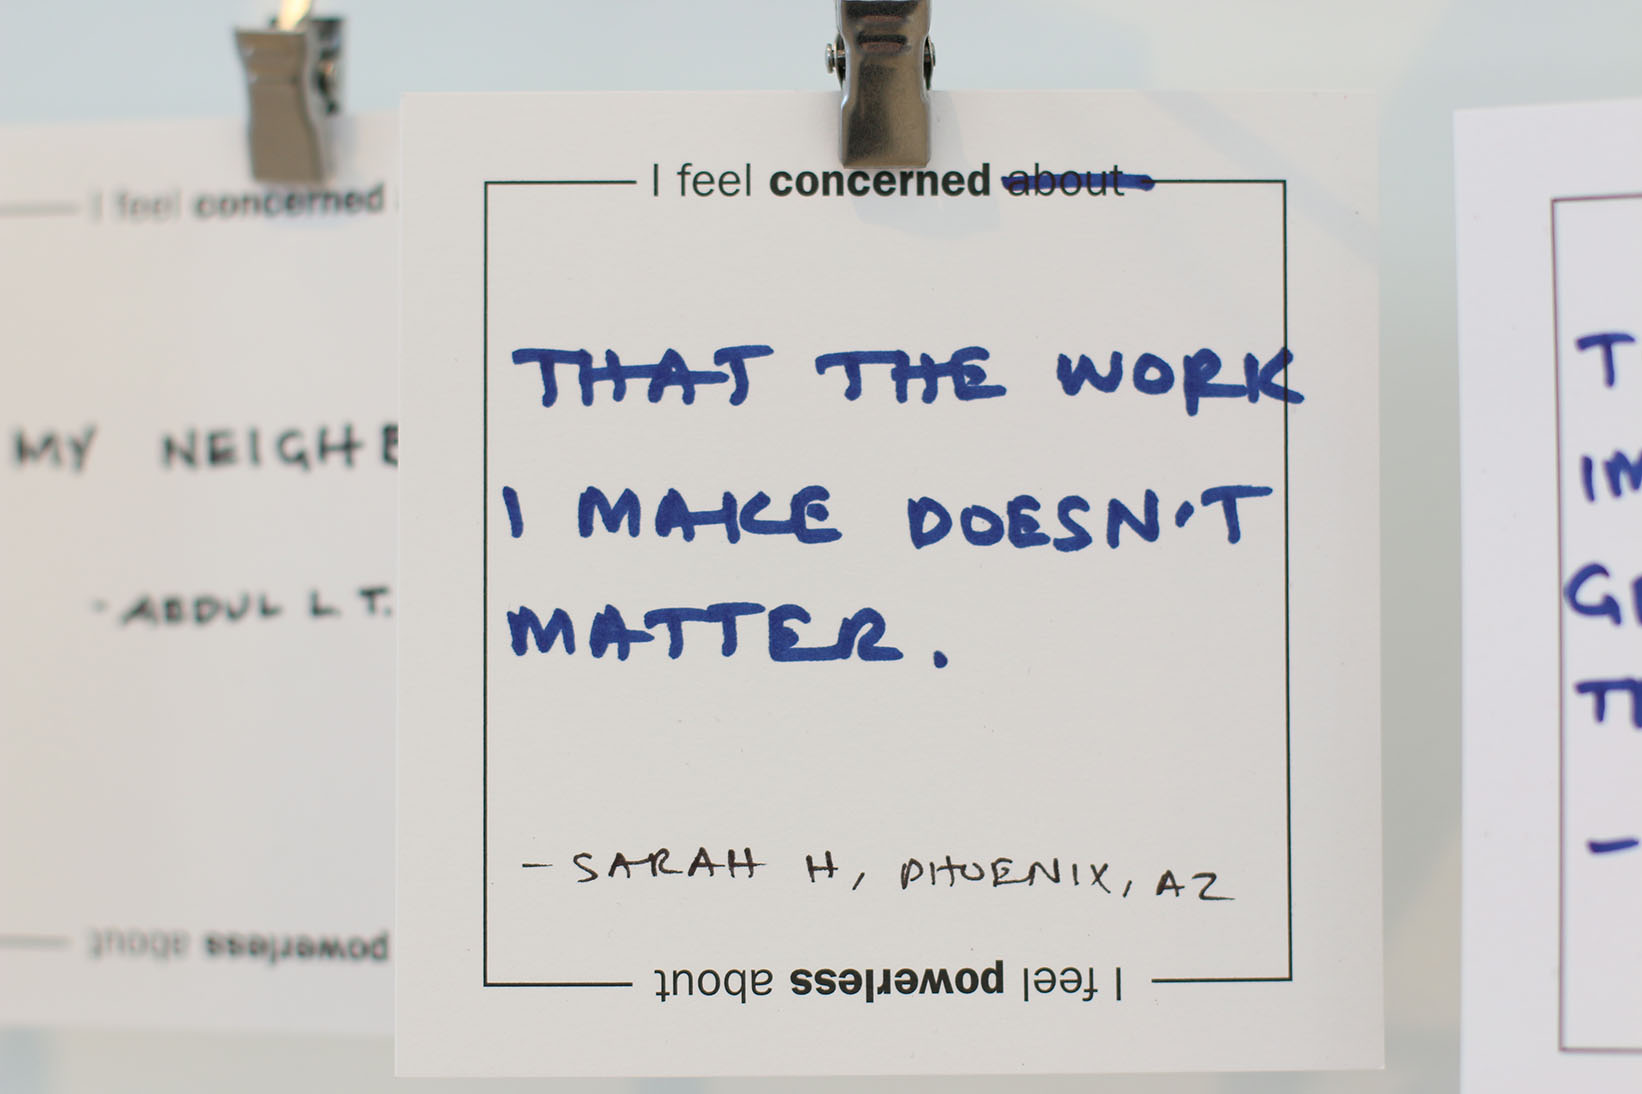 I feel concerned
MY NEIGHB
- ABDUL L T.
powerless about
I feel concerned about
THAT THE WORK
I MAKE DOESN'T
MATTER.
- SARAH H, PHOENIX, AZ
I feel powerless about
T
IM
G
TE
-